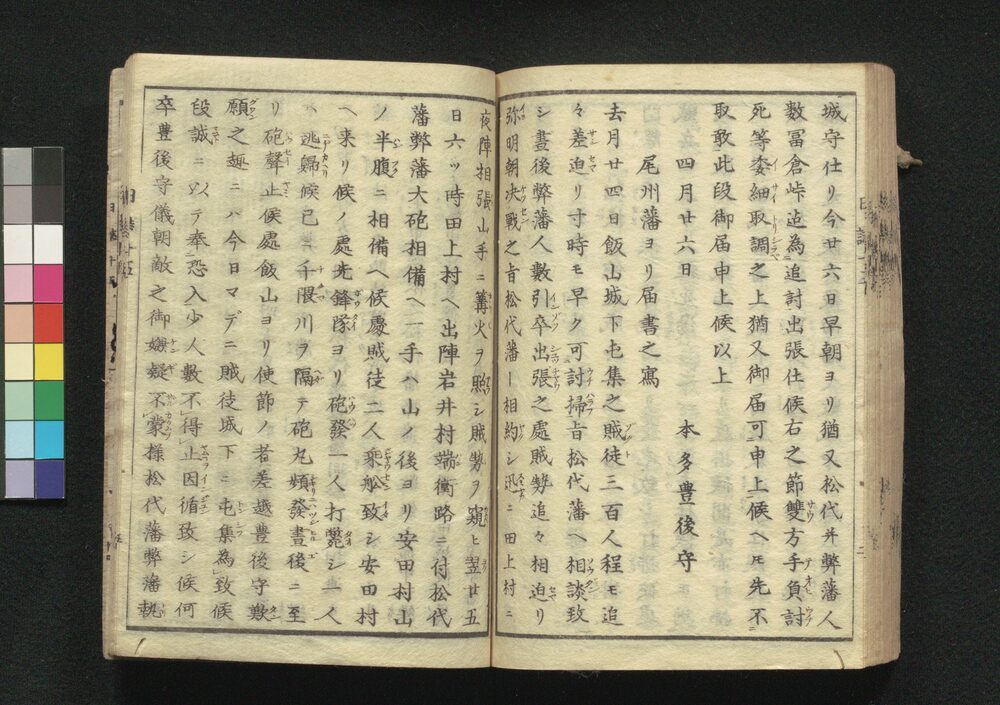 城守仕リ今廿六日早朝ヨリ猶又松代并弊藩人
数冨倉峠迠為追討出張仕候右之節雙方手負討
死等委細取調之上猶又御届可申上候ヘ𪜈先不
取敢此段御届申上候以上
四月廿六日　　　　本多豊後守
尾州藩ヨリ届書之寫
去月廿四日飯山城下屯集之賊徒三百人程モ追
々差迫リ寸時モ早ク可討掃旨松代藩ヘ相談致
シ晝後弊藩人數引卒出張之處賊勢追々相迫リ
弥明朝决戰之旨松代藩ト相約シ迅ニ田上村ニ
夜陣相張山手ニ篝火ヲ照シ賊勢ヲ窺ヒ翌廿五
日六ッ時田上村ヘ出陣岩井村端衝路ニ付松代
藩弊藩大砲相備ヘ一手ハ山ノ後ヨリ安田村山
ノ半腹ニ相備ヘ候處賊徒二人乘船致シ安田村
ヘ来リ候ノ處先鋒隊ヨリ砲發一人打斃シ一人
ハ逃歸候已ニ千隈川ヲ隔テ砲丸頻發晝後ニ至
リ砲聲止候處飯山ヨリ使節ノ者差越豊後守歎
願之趣ニハ今日マデニ賊徒城下ニ屯集為致候
段誠ニ以テ奉恐入少人數不得止因循致シ候何
卒豊後守儀朝敵之御嫌疑不蒙様松代藩弊藩執